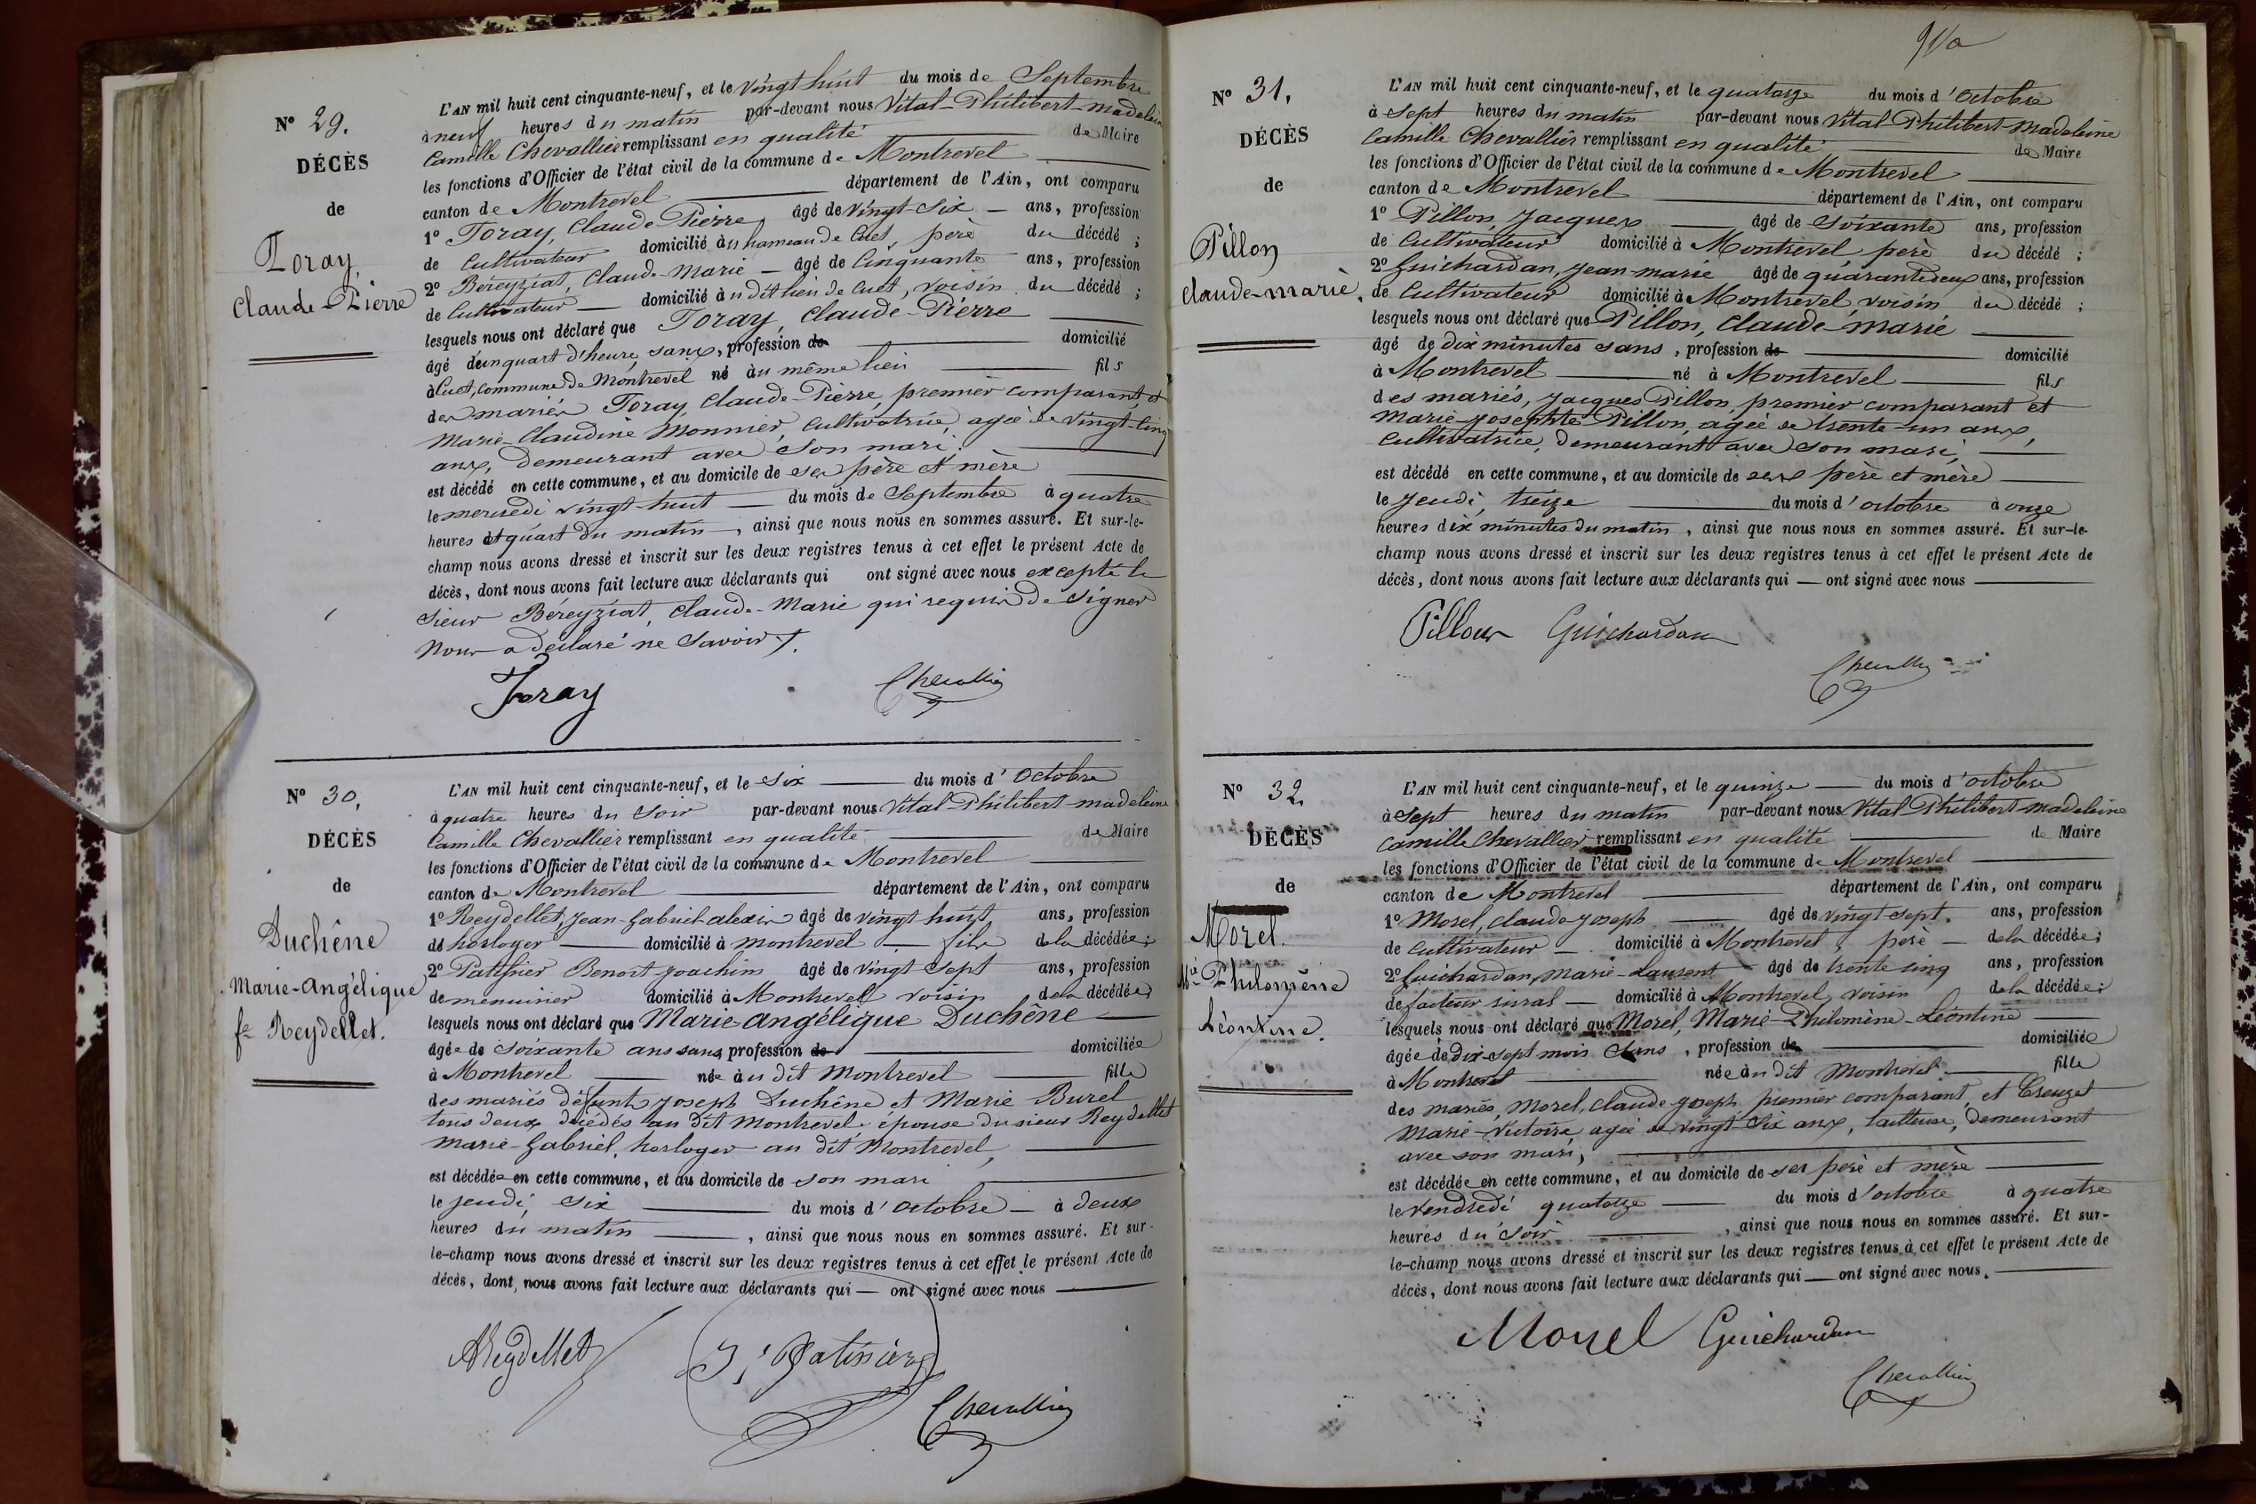 N° 29.
DÉCÈS
de
Foray,
Claude-Pierre
L'AN mil huit cent cinquante-neuf, et le vingt huit du mois de Septembre
à neuf heures du matin par-devant nous Vital-Philibert-madelein
Camille Chevallier remplissant en qualité de Maire
les fonctions d'Officier de l'état civil de la commune de Montrevel
canton de Montrevel département de l'Ain, ont comparu
1° Foray, Claude Pierre, âgé de vingt-six ans, profession
de Cultivateur domicilié à u hameau de Cuet, père du décédé ;
2° Béreyziat, Claude-Marie âgé de Cinquante ans, profession
de Cultivateur domicilié à u dit lieu de Cuet, voisin du décédé ;
lesquels nous ont déclaré que Foray, Claude-Pierre
âgé d'un quart d'heure, sans, profession de domicilié
à Cuet, commune de Montrevel né à u même lieu fils
des mariés Foray, Claude-Pierre, premier comparant, et
Marie-Claudine Monnier, Cultivatrice, agée de vingt-cinq
ans, demeurant avec son mari.
est décédé en cette commune, et au domicile de ses père et mère
le mercredi vingt-huit du mois de Septembre à quatre
heures et quart du matin, ainsi que nous nous en sommes assuré. Et sur-le-
champ nous avons dressé et inscrit sur les deux registres tenus à cet effet le présent Acte de
décès, dont nous avons fait lecture aux déclarants qui ont signé avec nous excepté le
Sieur Béreyziat, Claude-Marie qui requis de signer
nous a déclaré ne savoir.
Foray Chevallier
N° 30.
DÉCÈS
de
Duchêne
Marie-Angélique
fe Reydellet.
L'AN mil huit cent cinquante-neuf, et le six du mois d'octobre
à quatre heures du soir par-devant nous Vital Philibert-madeleine
Camille Chevallier remplissant en qualité de Maire
les fonctions d'Officier de l'état civil de la commune de Montrevel
canton de Montrevel département de l'Ain, ont comparu
1° Reydellet, Jean-Gabriel alexis âgé de vingt huit, ans, profession
de horloger domicilié à montrevel fils de la décédée ;
2° Patissier Benoit-Joachim âgé de vingt sept ans, profession
de menuisier domicilié à Montrevel voisin de la décédée ;
lesquels nous ont déclaré que Marie angélique Duchêne
âgée de soixante ans sans profession de domiciliée
à Montrevel née à u dit Montrevel fille
des mariés défunts Joseph Duchêne et Marie Burel
tous deux décédés au dit Montrevel. épouse du sieur Reydellet
Marie-Gabriel, horloger au dit Montrevel,
est décédée en cette commune, et au domicile de son mari
le jeudi, six du mois d'octobre à deux
heures du matin, ainsi que nous nous en sommes assuré. Et sur-
le-champ nous avons dressé et inscrit sur les deux registres tenus à cet effet le présent Acte de
décès, dont nous avons fait lecture aux déclarants qui ont signé avec nous
AReydellet Patissier
Chevallier
N° 31.
DÉCÈS
de
Pillon
Claude-marie.
L'AN mil huit cent cinquante-neuf, et le quatorze du mois d'octobre
à sept heures du matin par-devant nous Vital Philibert-Madeleine
Camille Chevallier remplissant en qualité de Maire
les fonctions d'Officier de l'état civil de la commune de Montrevel
canton de Montrevel département de l'Ain, ont comparu
1° Pillon, Jacques âgé de soixante ans, profession
de Cultivateur domicilié à Montrevel père du décédé ;
2° Guichardan, Jean-marie âgé de quarante deux ans, profession
de Cultivateur domicilié à Montrevel, voisin du décédé ;
lesquels nous ont déclaré que Pillon, Claude-marie
âgé de dix minutes sans, profession de domicilié
à Montrevel né à Montrevel fils
des mariés, Jacques Pillon, premier comparant et
Marie-Josephte Pillon, agée de trente-un ans,
Cultivatrice, demeurant avec son mari,
est décédé en cette commune, et au domicile de ses père et mère
le jeudi, treize du mois d'octobre à onze
heures dix minutes du matin, ainsi que nous nous en sommes assuré. Et sur-le-
champ nous avons dressé et inscrit sur les deux registres tenus à cet effet le présent Acte de
décès, dont nous avons fait lecture aux déclarants qui ont signé avec nous
Pillon Guichardan
Chevallier
N° 32.
DÉCÈS
de
Morel.
Mie Philomène
Léontine.
L'AN mil huit cent cinquante-neuf, et le quinze du mois d'octobre
à sept heures du matin par-devant nous Vital Philibert-Madeleine
Camille Chevallier remplissant en qualité de Maire
les fonctions d'Officier de l'état civil de la commune de Montrevel
canton de Montrevel département de l'Ain, ont comparu
1° Morel, Claude-Joseph âgé de vingt-sept. ans, profession
de cultivateur domicilié à Montrevel, père de la décédée ;
2° Guichardan, Marie-Laurent âgé de trente cinq ans, profession
de facteur rural domicilié à Montrevel, voisin de la décédée ;
lesquels nous ont déclaré que Morel, Marie-Philomène-Léontine
âgée de dix-sept mois sans, profession de domiciliée
à Montrevel née à u dit Montrevel fille
des mariés, Morel, Claude Joseph premier comparant, et Creuzet
Marie-Victoire, agée de vingt-six ans, tailleuse, demeurant
avec son mari,
est décédée en cette commune, et au domicile de ses père et mère
le vendredi quatorze du mois d'octobre à quatre
heures du soir, ainsi que nous nous en sommes assuré. Et sur-
le-champ nous avons dressé et inscrit sur les deux registres tenus à cet effet le présent Acte de
décès, dont nous avons fait lecture aux déclarants qui ont signé avec nous.
Morel Guichardan
Chevallier